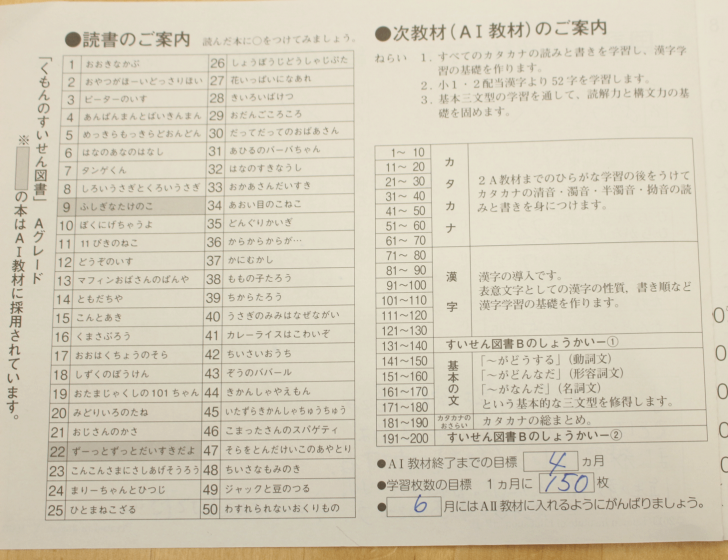 ●読書のご案内 読んだ本に○をつけてみましょう。
「くもんのすいせん図書」 Aグレード
※の本はAI教材に採用されています。
1 おおきなかぶ
2 おやつがほーいどっさりほい
3 ピーターのいす
4 あんぱんまんとばいきんまん
5 めっきらもっきらどおんどん
6 はなのあなのはなし
7 タンゲくん
8 しろいうさぎとくろいうさぎ
9 ふしぎなたけのこ
10 ぼくにげちゃうよ
11 11ぴきのねこ
12 どうぞのいす
13 マフィンおばさんのぱんや
14 ともだちや
15 こんとあき
16 くまさぶろう
17 おおはくちょうのそら
18 しずくのぼうけん
19 おたまじゃくしの101ちゃん
20 みどりいろのたね
21 おじさんのかさ
22 ずーっとずっとだいすきだよ
23 こんこんさまにさしあげそうろう
24 まりーちゃんとひつじ
25 ひとまねこざる
26 しょうぼうじどうしゃじぷた
27 花いっぱいになあれ
28 きいろいばけつ
29 おだんごころころ
30 だってだってのおばあさん
31 あひるのバーバちゃん
32 はなのすきなうし
33 おかあさんだいすき
34 あおい目のこねこ
35 どんぐりかいぎ
36 からからからが…
37 かにむかし
38 ももの子たろう
39 ちからたろう
40 うさぎのみみはなぜながい
41 カレーライスはこわいぞ
42 ちいさいおうち
43 ぞうのババール
44 きかんしゃやえもん
45 いたずらきかんしゃちゅうちゅう
46 こまったさんのスパゲティ
47 そらをとんだけいこのあやとり
48 ちいさなもみのき
49 ジャックと豆のつる
50 わすれられないおくりもの
●次教材(AⅠ教材)のご案内
ねらい 1. すべてのカタカナの読みと書きを学習し、漢字学
習の基礎を作ります。
2. 小1・2配当漢字より52字を学習します。
3. 基本三文型の学習を通して、読解力と構文力の基
礎を固めます。
1～10
11～20
21～30
31～40
41～50
51～60
61～70
カタカナ
2A教材までのひらがな学習の後をうけて
カタカナの清音・濁音・半濁音・拗音の読
みと書きを身につけます。
71～80
81～90
91～100
101～110
111～120
121～130
漢字
漢字の導入です。
表意文字としての漢字の性質、書き順など
漢字学習の基礎を作ります。
131～140 すいせん図書Bのしょうかいー①
141～150
151～160
161～170
171～180
基本の文
「～がどうする」(動詞文)
「～がどんなだ」(形容詞文)
「～がなんだ」(名詞文)
という基本的な三文型を修得します。
181～190 カタカナのおさらい カタカナの総まとめ。
191～200 すいせん図書Bのしょうかいー②
●AⅠ教材終了までの目標 4 ヵ月
●学習枚数の目標 1ヵ月に 150 枚
● 6 月にはAⅡ教材に入れるようにがんばりましょう。